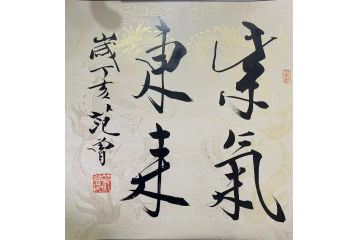 紫氣
東来
歲丁亥范曾